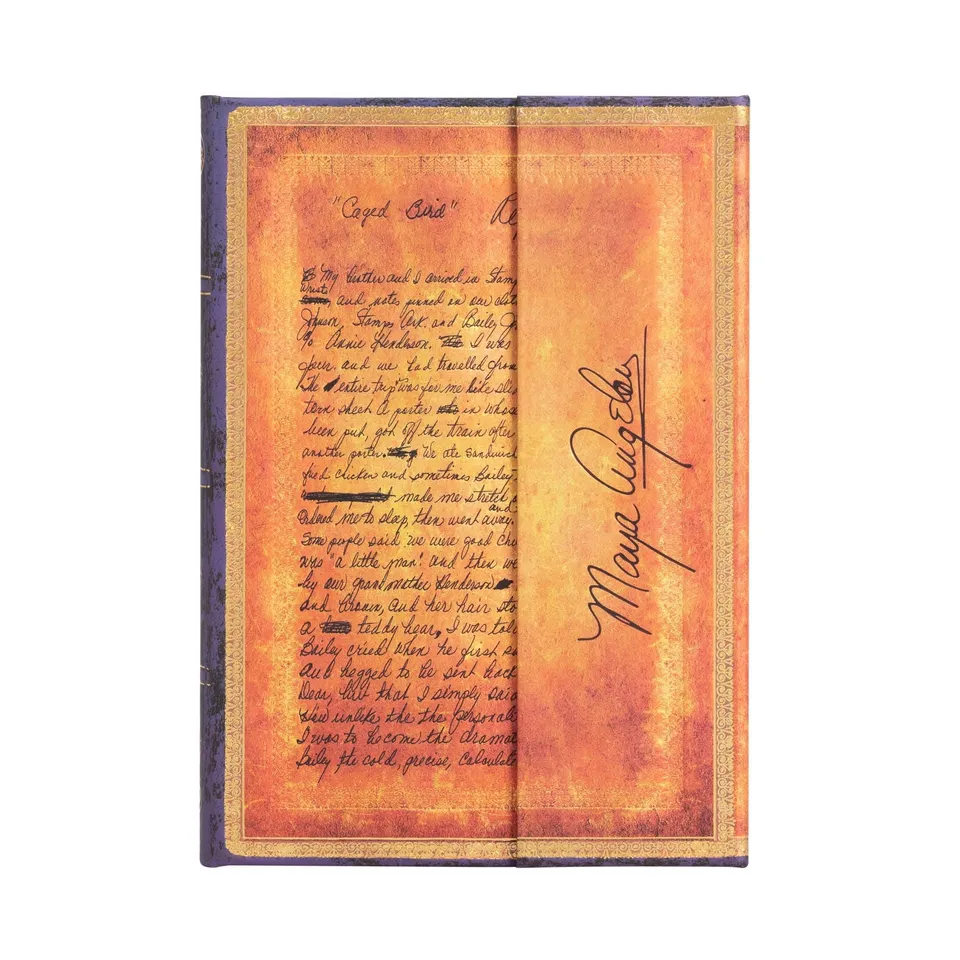 "Caged Bird" Re
My brother and I arrived in Stam
wrists and notes pinned on our clot
Johnson, Stamps Ark. and Bailey Jo
c/o Annie Henderson. I was
four. and we had travelled from
The entire trip was for me like sli
torn sheet A porter in whose
been put, got off the train after
another porter. We ate sandwich
fried chicken and sometimes Bailey
made me stretch o
and
Ordered me to sleep, then went away.
Some people said we were good chi
was "a little man" and then we
by our grandmother Henderson
and brown, and her hair sto
a teddy bear, I was told
Bailey cried when he first sa
and begged to be sent back
Dear, but that I simply said
How unlike the the personali
I was to become the dramat
Bailey the cold, precise, calculate
Maya Angelou